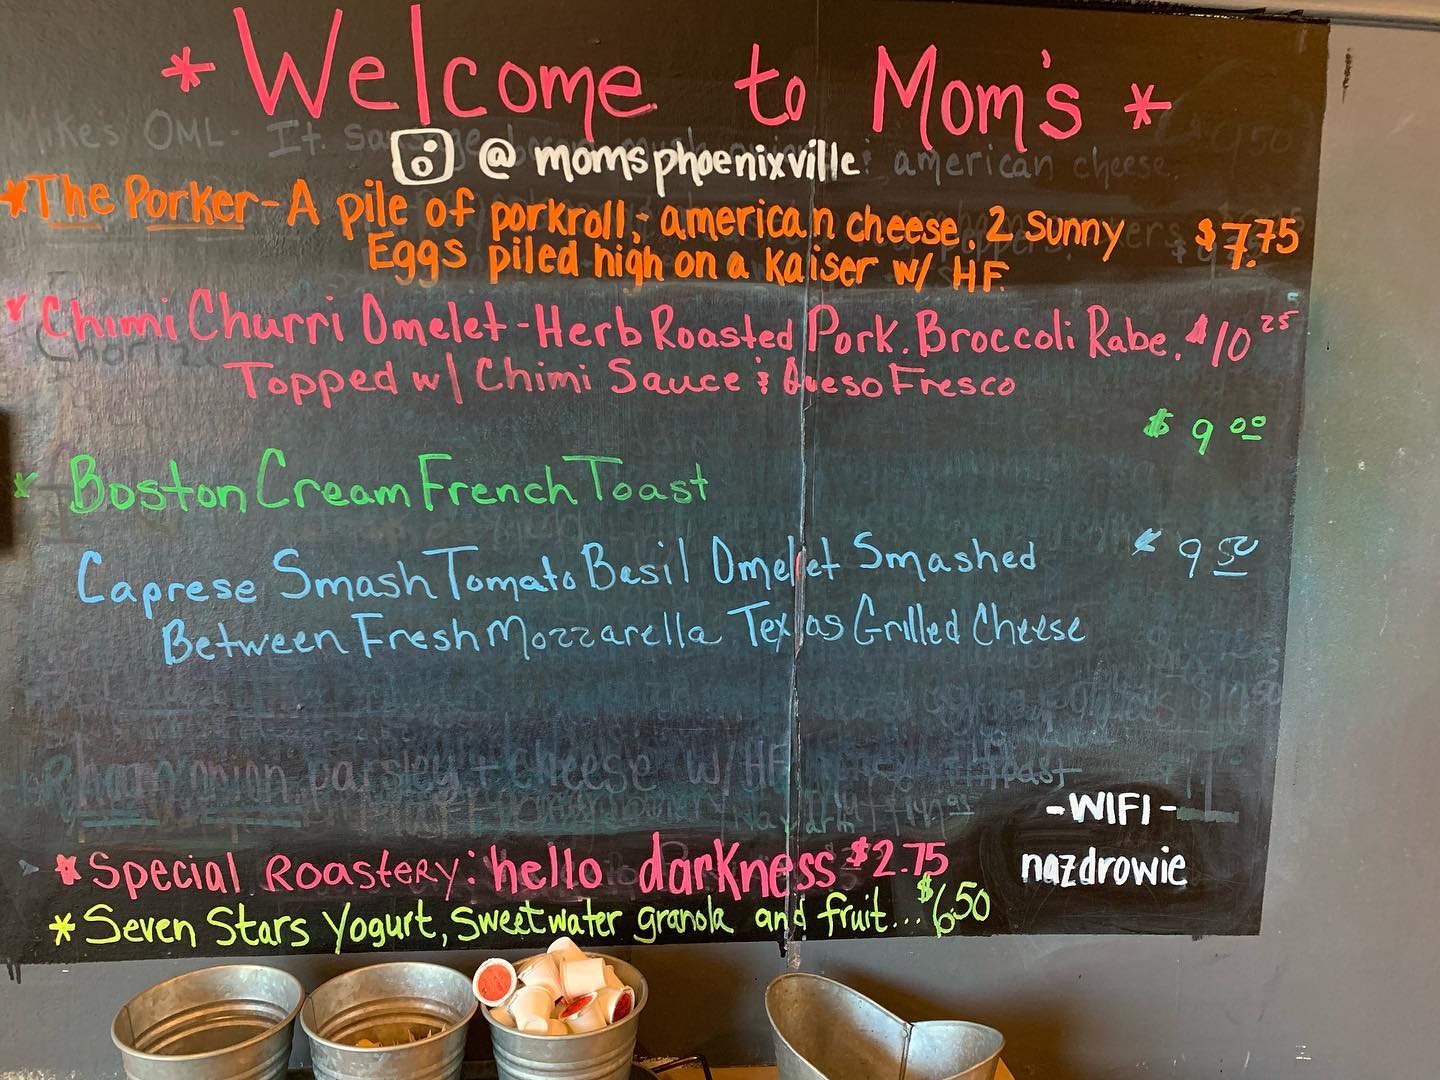 * Welcome to Mom's *
@momsphoenixville
*The Porker - A pile of porkroll, american cheese, 2 sunny $7.75
Eggs piled high on a kaiser w/ HF
* Chimi Churri Omelet - Herb Roasted Pork. Broccoli Rabe. $10 25
Topped w/ Chimi Sauce & Queso Fresco
$9 00
* Boston Cream French Toast
Caprese Smash Tomato Basil Omelet Smashed 9 50
Between Fresh Mozzarella Texas Grilled Cheese
-WIFI-
nazdrowie
* Special Roastery: hello darkness $2.75
* Seven Stars Yogurt, Sweetwater granola and fruit... $6.50
Mike's OML - It. sausage
american cheese.
parsley, + cheese w/ HF